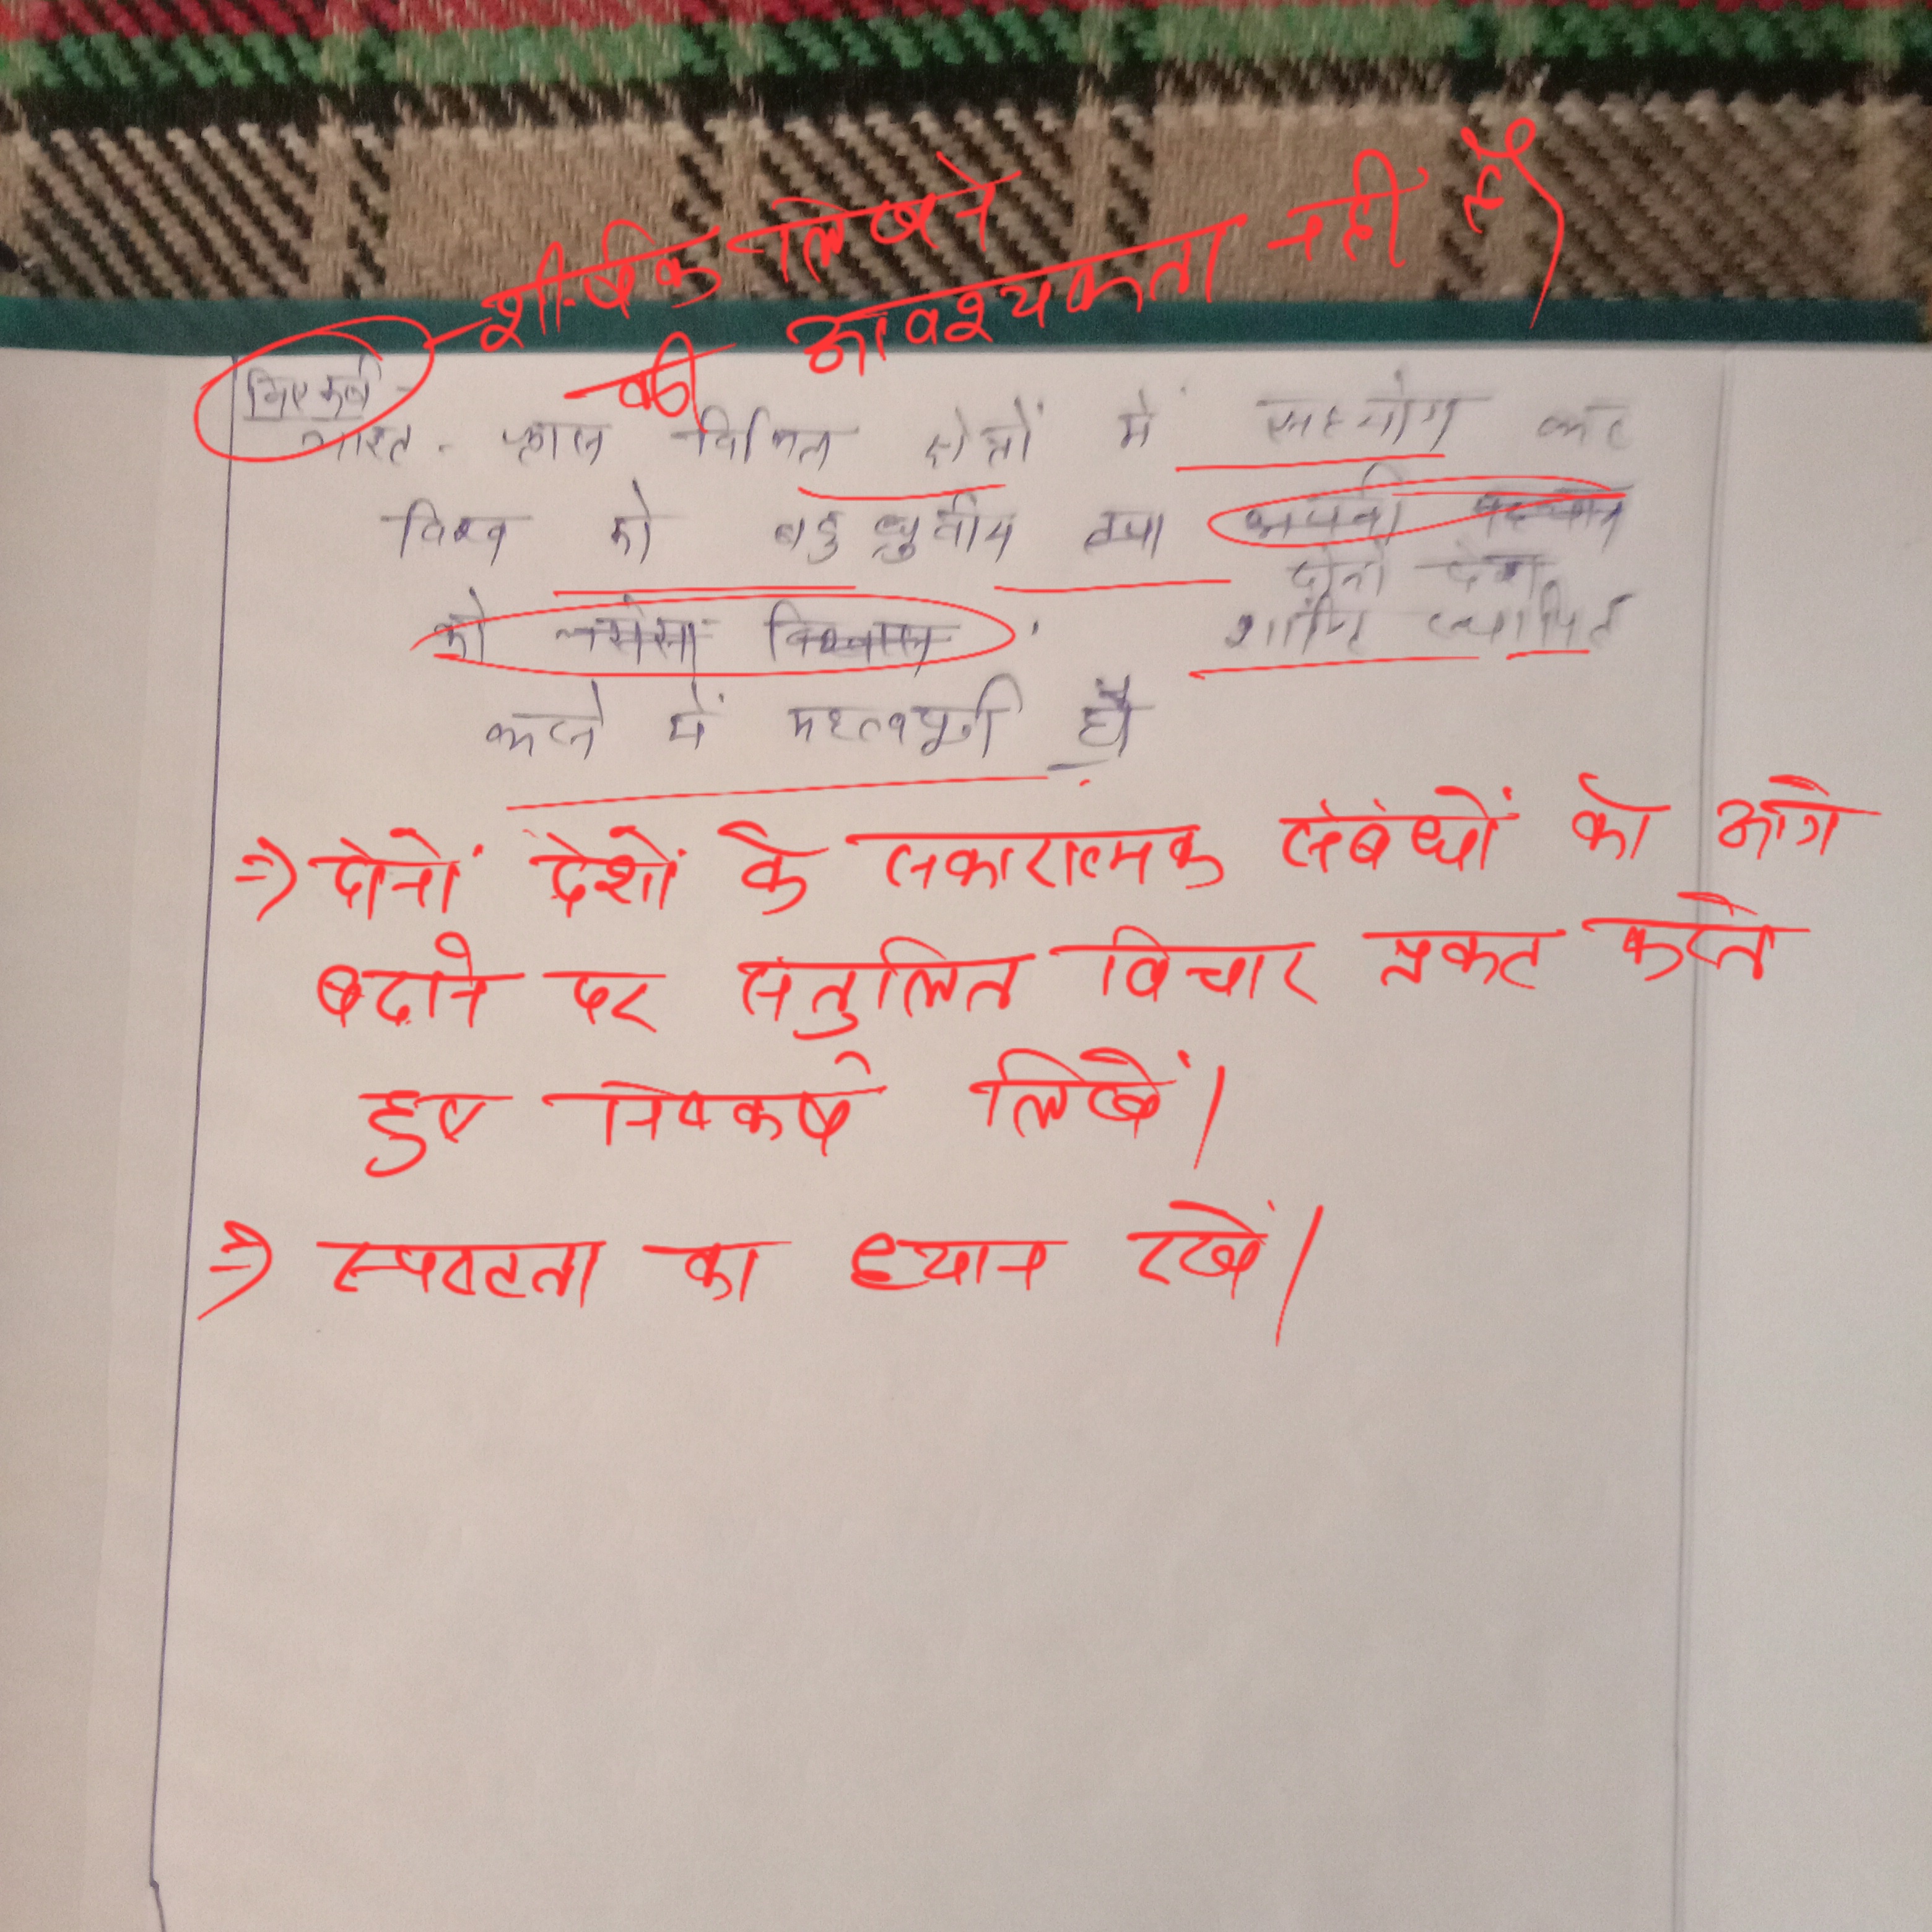 शीर्षक लिखने
की आवश्यकता नहीं है।
निष्कर्ष -
भारत - फ्रांस विभिन्न क्षेत्रों में सहयोग कर
विश्व को बहुध्रुवीय तथा अपनी पहचान
दोनों देश
को विश्वास शांति स्थापित
करने में महत्वपूर्ण है
⇒ दोनों देशों के सकारात्मक संबंधों को आगे
बढ़ाने पर संतुलित विचार प्रकट करते
हुए निष्कर्ष लिखें।
⇒ स्पष्टता का ध्यान रखें।